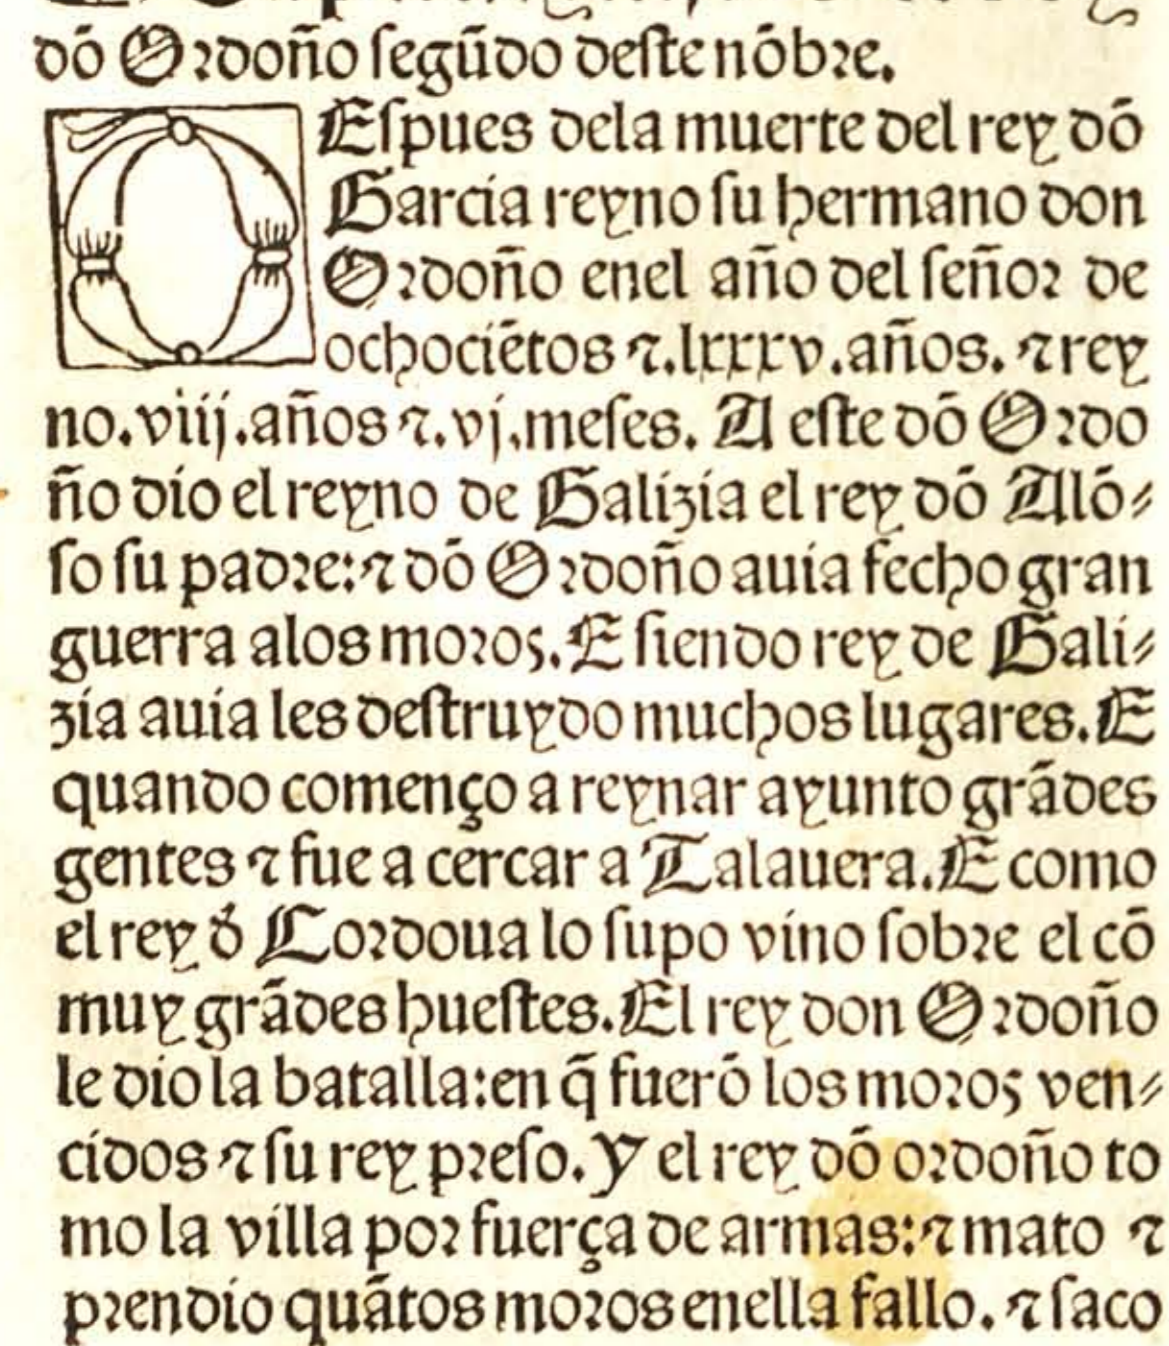 dõ Ordoño ſegũdo deſte nõbre.
DEſpues dela muerte del rey dõ
Garcia reyno ſu hermano don
Ordoño enel año del ſeñor de
ochociẽtos ⁊.lxxxv.años. ⁊ rey
no.viij.años ⁊.vj.meſes. A eſte dõ Ordo
ño dio el reyno de Galizia el rey dõ Alõ⸗
ſo ſu padre:⁊ dõ Ordoño auia fecho gran
guerra alos moros. E ſiendo rey de Gali⸗
zia auia les deſtruydo muchos lugares. E
quando començo a reynar ayunto grãdes
gentes ⁊ fue a cercar a Talauera. E como
el rey đ Cordoua lo ſupo vino ſobre el cõ
muy grãdes hueſtes. El rey don Ordoño
le dio la batalla:en q̃ fuerõ los moros ven⸗
cidos ⁊ ſu rey preſo. Y el rey dõ ordoño to
mo la villa por fuerça de armas:⁊ mato ⁊
prendio quãtos moros enella fallo. ⁊ ſaco